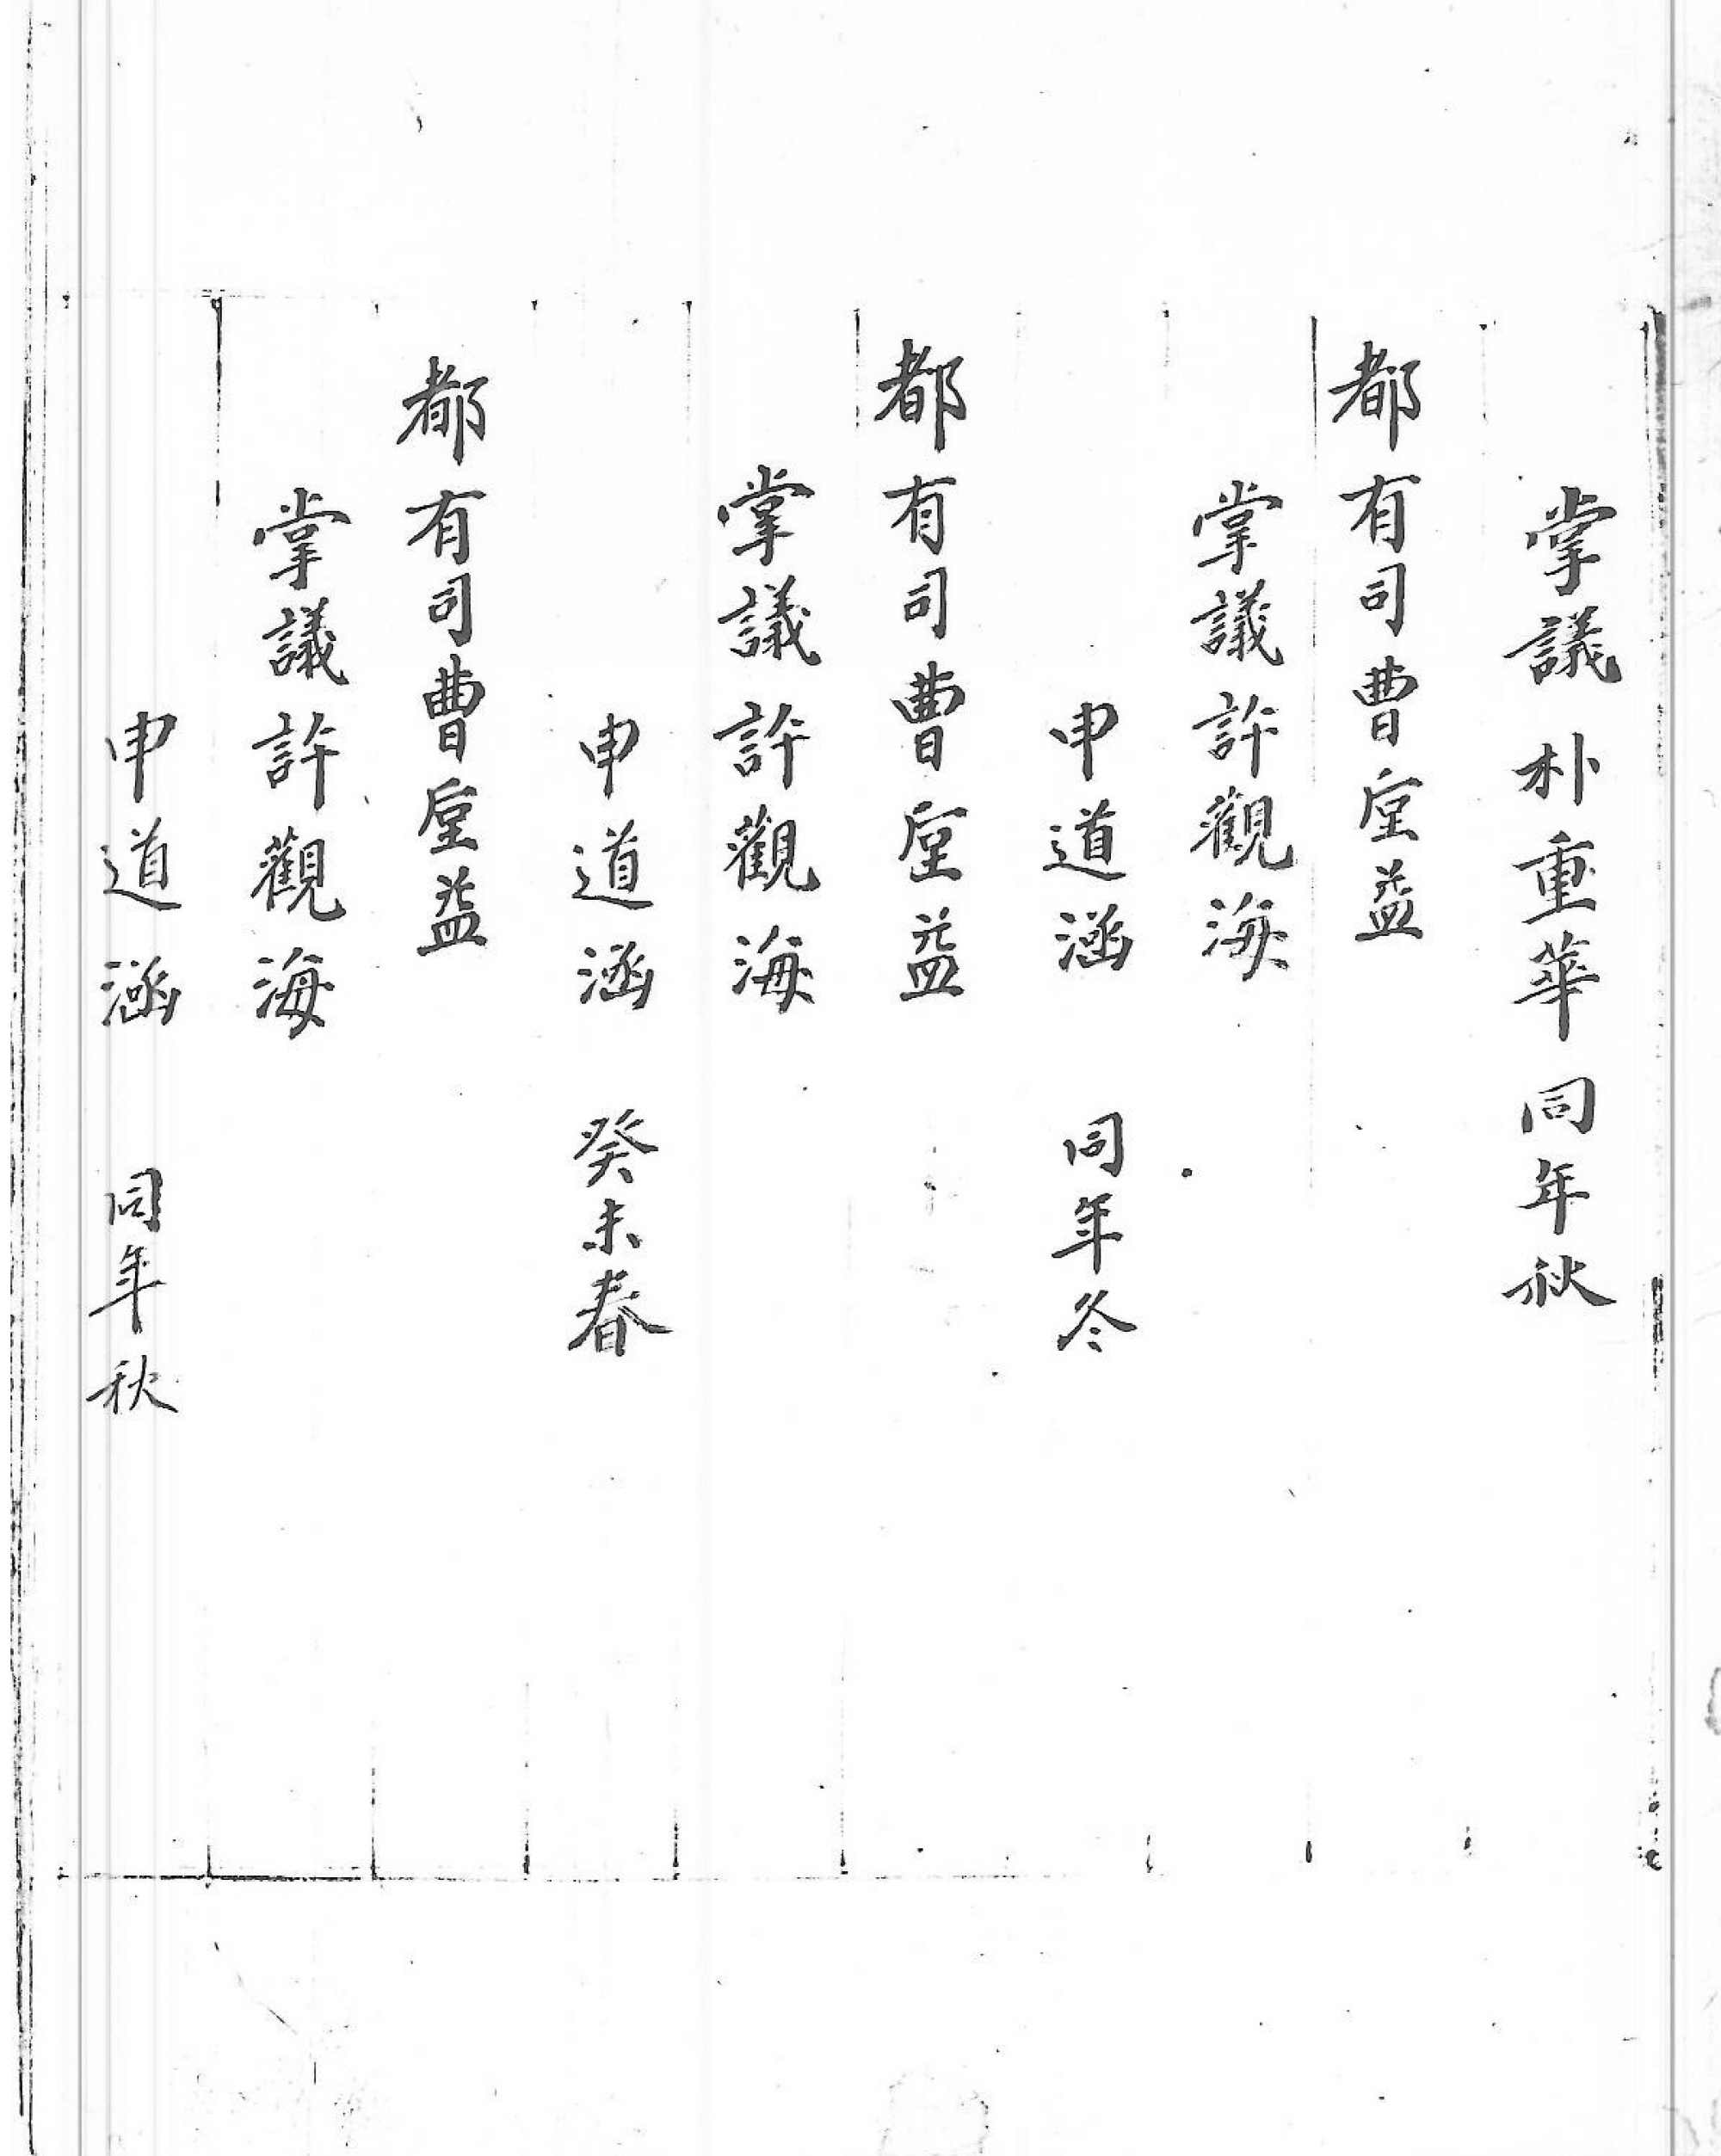 掌議 朴重華 同年秋
都有司曹垕益
掌議許觀海
申道涵 同年冬
都有司曹垕益
掌議許觀海
申道涵 癸未春
都有司曹垕益
掌議許觀海
申道涵 同年秋